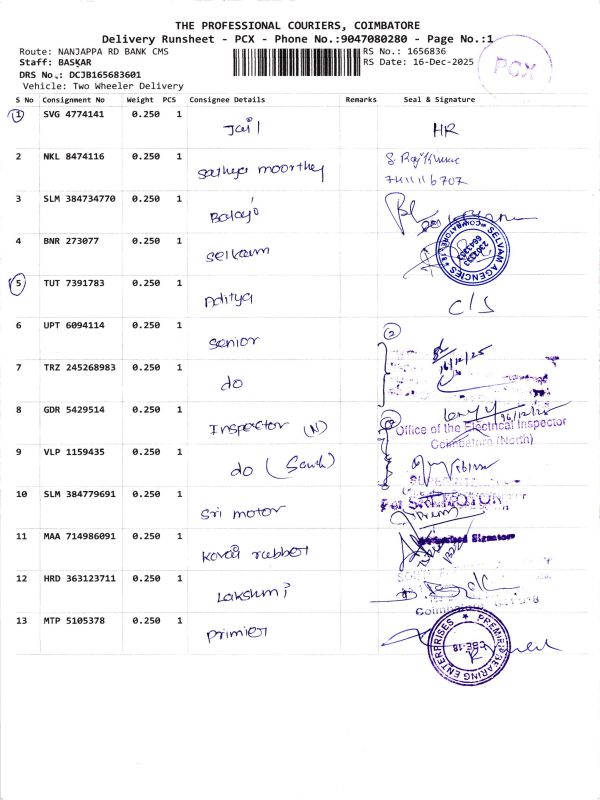 THE PROFESSIONAL COURIERS, COIMBATORE
Delivery Runsheet - PCX - Phone No.:9047080280 - Page No.:1
Route: NANJAPPA RD BANK CMS
RS No.: 1656836
Staff: BASKAR
RS Date: 16-Dec-2025
DRS No.: DCJB165683601
Vehicle: Two Wheeler Delivery
PCX
S No Consignment No Weight PCS Consignee Details Remarks Seal & Signature
1 SVG 4774141 0.250 1 Jail HR
2 NKL 8474116 0.250 1 Sathya moorthy
3 SLM 384734770 0.250 1 Balaji
4 BNR 273077 0.250 1 Selvam
SELVAM AGENCIES
5 TUT 7391783 0.250 1 Aditya C/S
6 UPT 6094114 0.250 1 Senior
16/12/25
7 TRZ 245268983 0.250 1 do
8 GDR 5429514 0.250 1 Inspector (N)
16/12/25
Office of the Electrical Inspector
Coimbatore (North)
9 VLP 1159435 0.250 1 do (South)
10 SLM 384779691 0.250 1 Sri motor
For SRI MOTOR
11 MAA 714986091 0.250 1 Kovai rubber
Authorised Signatory
12 HRD 363123711 0.250 1 Lakshmi
13 MTP 5105378 0.250 1 Primier
PREMIER BEARING ENTERPRISES
CBE-18